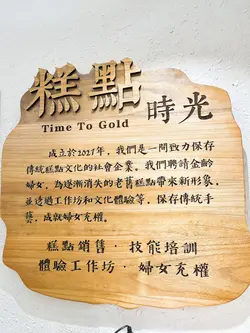 糕點時光
Time To Gold
成立於2021年,我們是一間致力保存
傳統糕點文化的社會企業。我們聘請金齡
婦女,為逐漸消失的老舊糕點帶來新形象,
並透過工作坊和文化體驗等,保存傳統手
藝,成就婦女充權。
糕點銷售·技能培訓
體驗工作坊·婦女充權